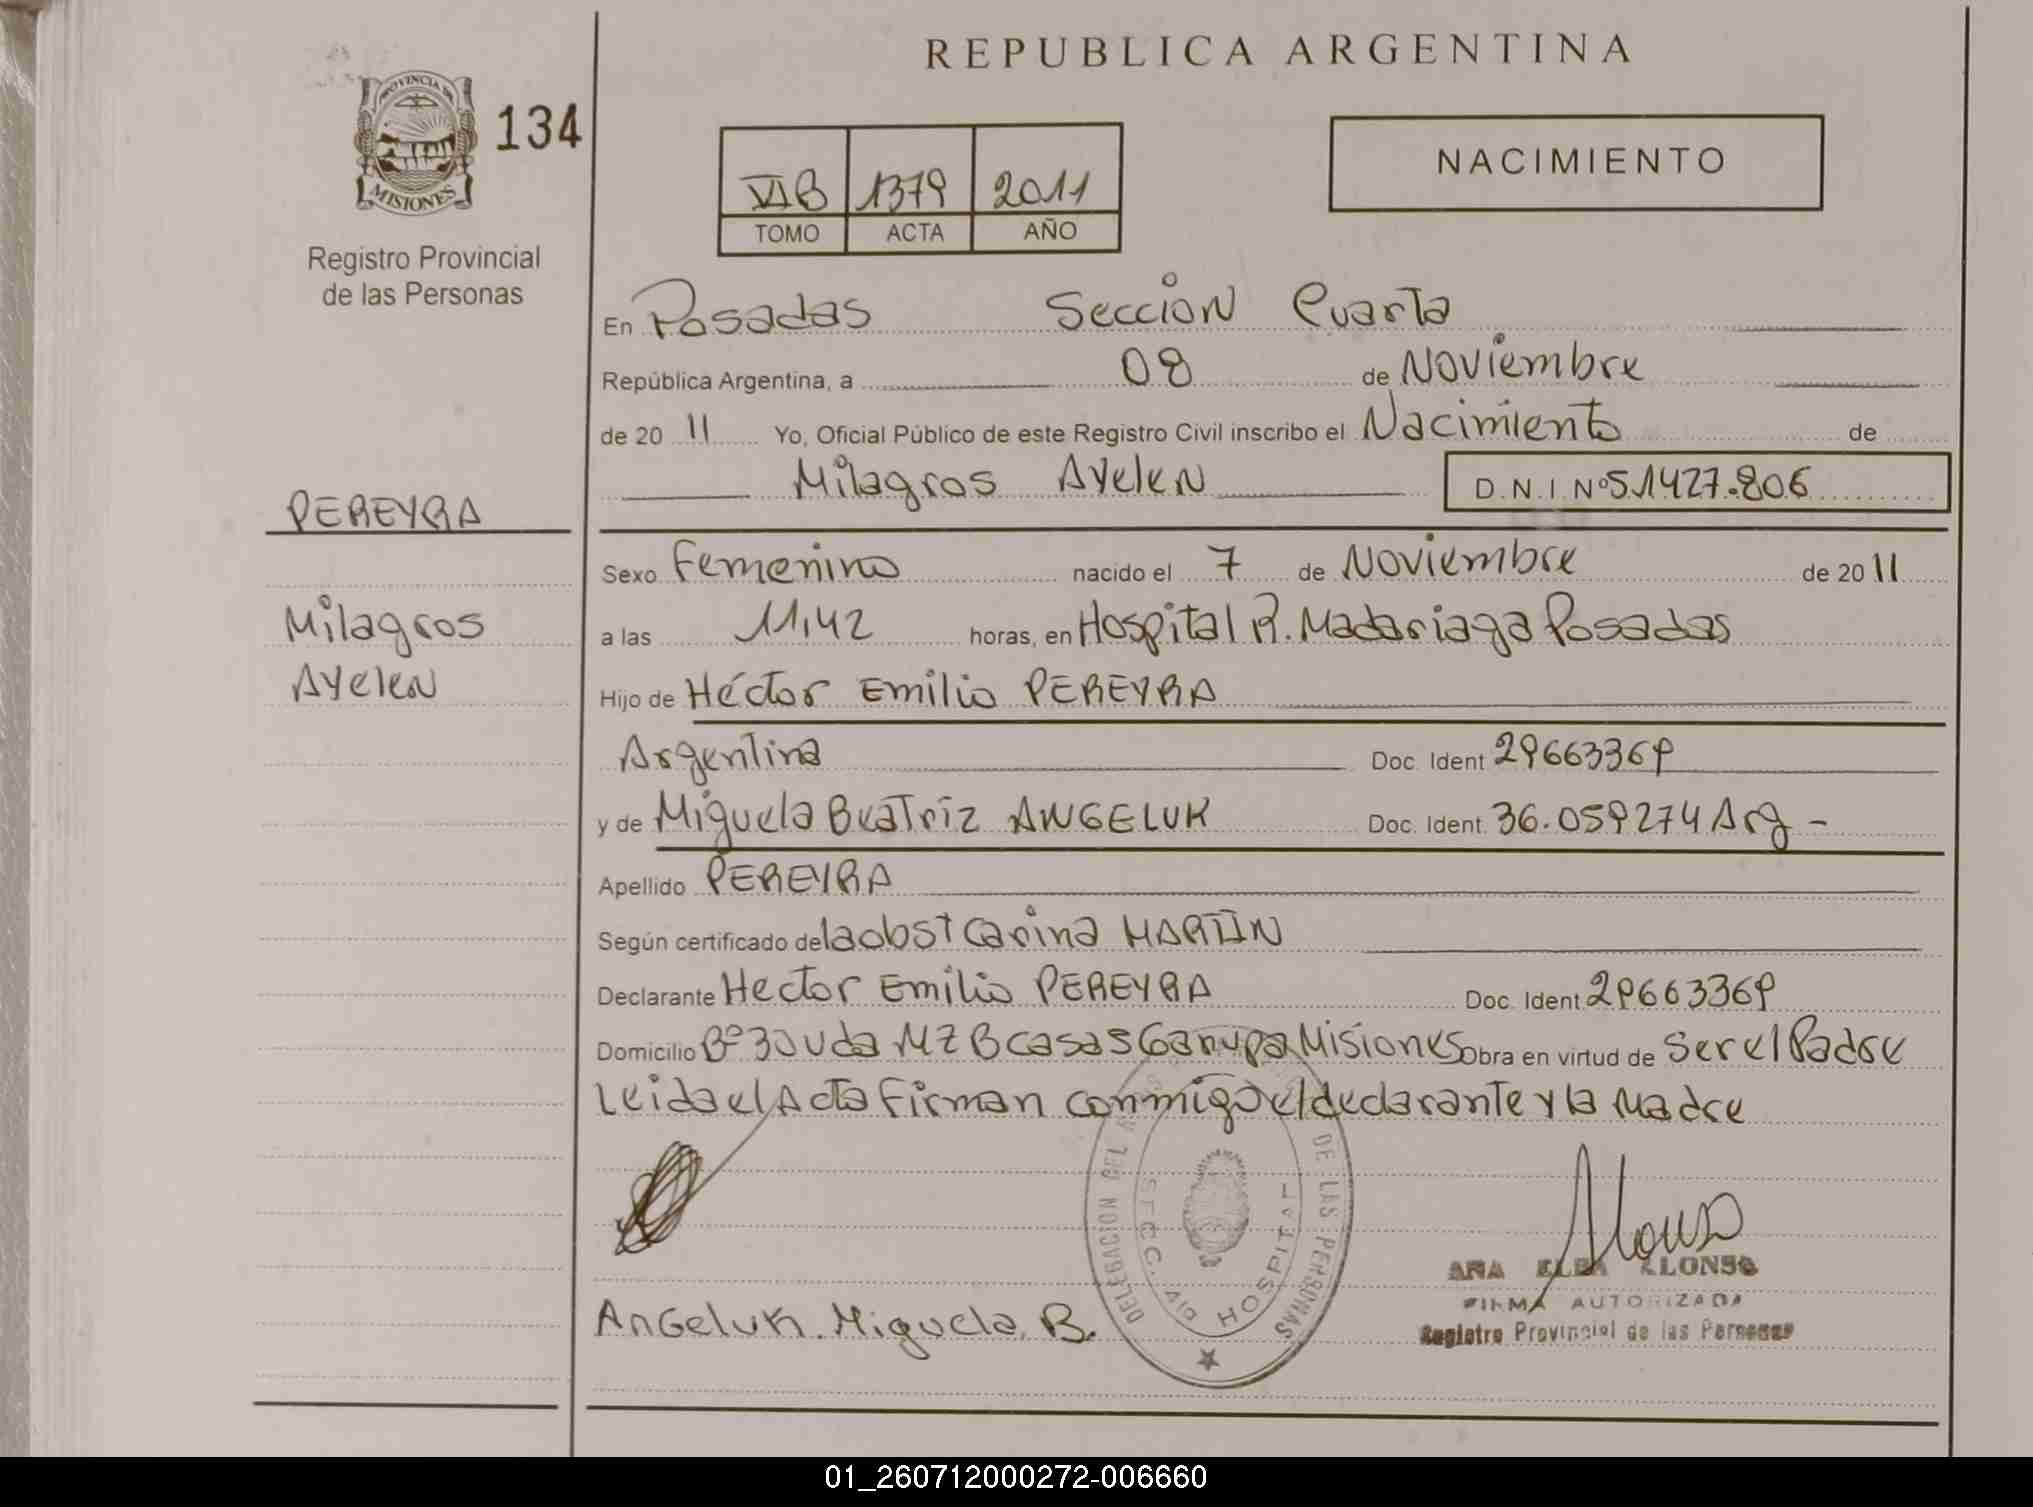 REPUBLICA ARGENTINA
PROVINCIA DE
MISIONES
134
Registro Provincial
de las Personas
VIB 1379 2011
TOMO ACTA AÑO
NACIMIENTO
En Posadas Seccion Cuarta
República Argentina, a 08 de Noviembre
de 20 11 Yo, Oficial Público de este Registro Civil inscribo el Nacimiento de
Milagros Ayelen D.N.I. Nº 51427.806
PEREYRA
Milagros
Ayelen
Sexo Femenino nacido el 7 de Noviembre de 20 11
a las 11,42 horas, en Hospital R. Madariaga Posadas
Hijo de Héctor Emilio PEREYRA
Argentina Doc. Ident 29663369
y de Miguela Beatriz ANGELUK Doc. Ident. 36.059274 Arg -
Apellido PEREYRA
Según certificado de la obst Carina MARTIN
Declarante Hector Emilio PEREYRA Doc. Ident 29663369
Domicilio Bº 30 Vda MZ B casa 5 Garupa Misiones Obra en virtud de Ser el Padre
Leida el Acta Firman conmigo el declarante y la Madre
DELEGACION DEL DE LAS PERSONAS
SECC. 4ta HOSPITAL
Alonso
ANA ELBA ALONSO
FIRMA AUTORIZADA
Registro Provincial de las Personas
Angeluk. Miguela. B.
01_260712000272-006660